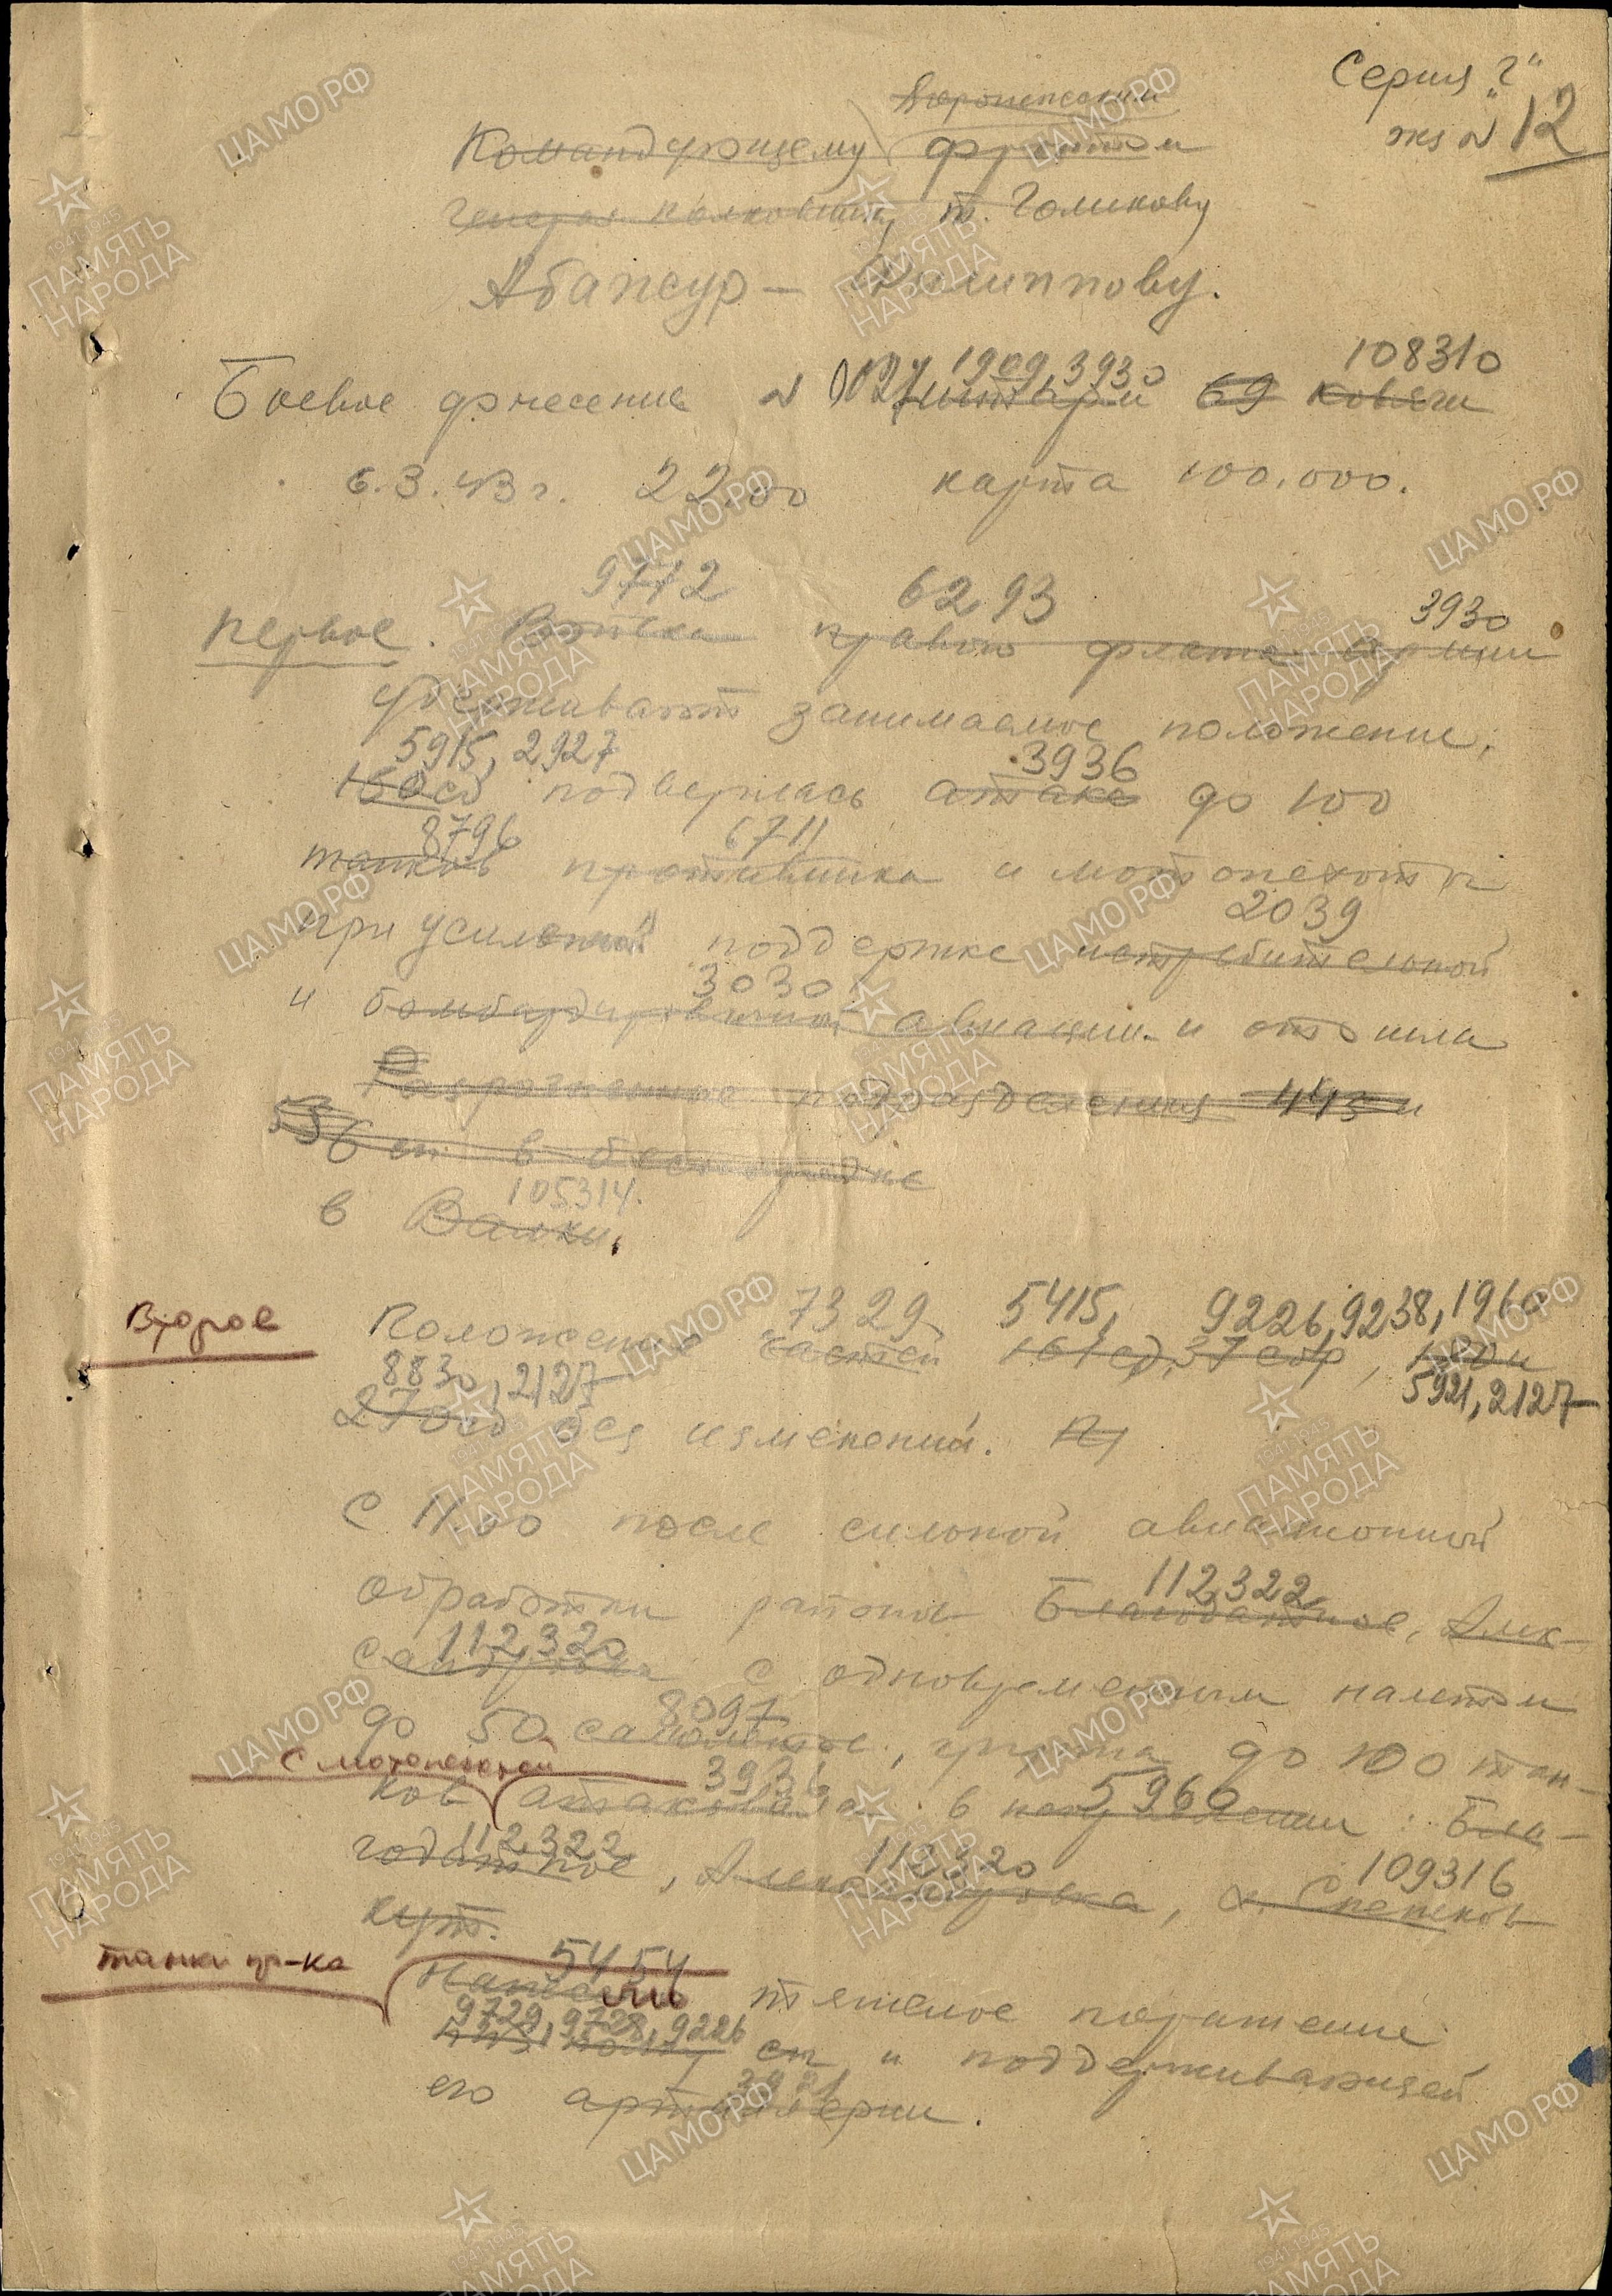 Серия "Г"
экз N 12
Воронежским
Командующему фронтом
генерал полковнику т. Голикову
Абажур — Филиппову.
1909, 3930 108310
Боевое донесение N 0027 штарм 69 Ковяги
6.3.43 г. 22.00 карта 100.000.
9772 6293 3930
Первое. Войска правого фланга армии
удерживают занимаемое положение,
5915, 2927 3936
160 сд подверглась атаке до 100
8796 6711
танков противника и мотопехоты
2039
при усиленной поддержке истребительной
3030
и бомбардировочной авиации и отошла
Разрозненные подразделения 443 и
в
105314.
в Валки.
7329 5415, 9226, 9238, 1960
Второе Положение частей 161 сд, 37 сбр, 180 и
8830, 2127 5921, 2127
270 сд без изменений.
С 11.00 после сильной авиационной
112322
обработки районов Благодатное, Алек-
112320
сандровка с одновременным налетом
8097
до 50 самолетов, группа до 100 тан-
с мотопехотой 3936 5960
ков атаковала в направлении: Бла-
112322 112320 109316
годатное, Александровка, х. Снежков
Кут.
5454
танки пр-ка нанесли тяжелое поражение
9729, 9728, 9226
443 полку сп и поддерживающей
его артиллерии.
ЦА МО РФ
1941-1945
ПАМЯТЬ
НАРОДА